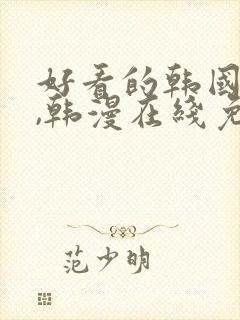 好看的韩国
,韩漫在线免
范少明